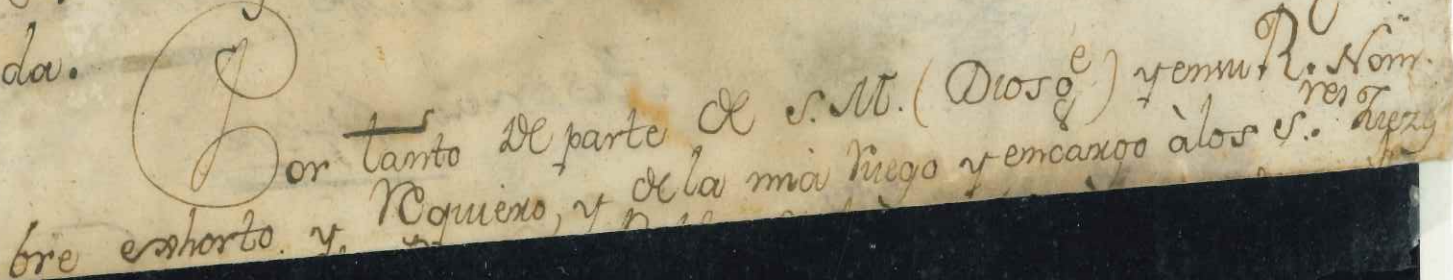 da.
Por tanto de parte de S. M. (Dios g̃e) y en su R. Nom-
bre exhorto y requiero, y de la mia ruego y encargo à los S.res Juezes